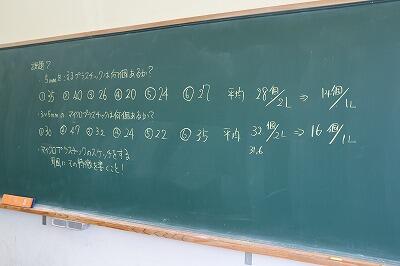 課題2
5mm目にあるプラスチックは何個あるか?
① 35 ② 40 ③ 26 ④ 20 ⑤ 24 ⑥ 27 平均 28個/2L ⇒ 14個/1L
のマイクロプラスチックは何個あるか?
① 30 ② 47 ③ 32 ④ 24 ⑤ 22 ⑥ 35 平均 32個/2L ⇒ 16個/1L
31.6
・マイクロプラスチックのスケッチをする
その特徴を書くこと!